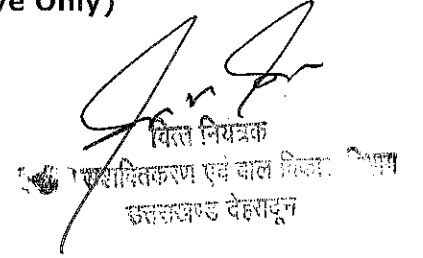 ve Only)
वित्त नियंत्रक
सशक्तिकरण एवं बाल विकास विभाग
उत्तराखण्ड देहरादून